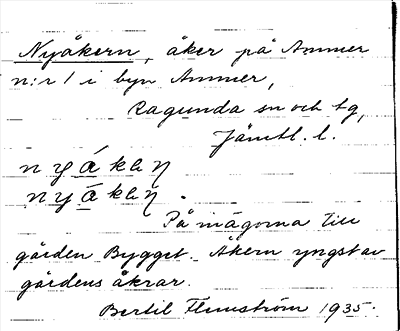 Nyåkern, åker på Ammer
n:r 1 i byn Ammer,
Ragunda sn och tg,
Jämtl. l.
På mägorna till
gården Bygget. Åkern yngst av
gårdens åkrar.
Bertil Flemström 1935.